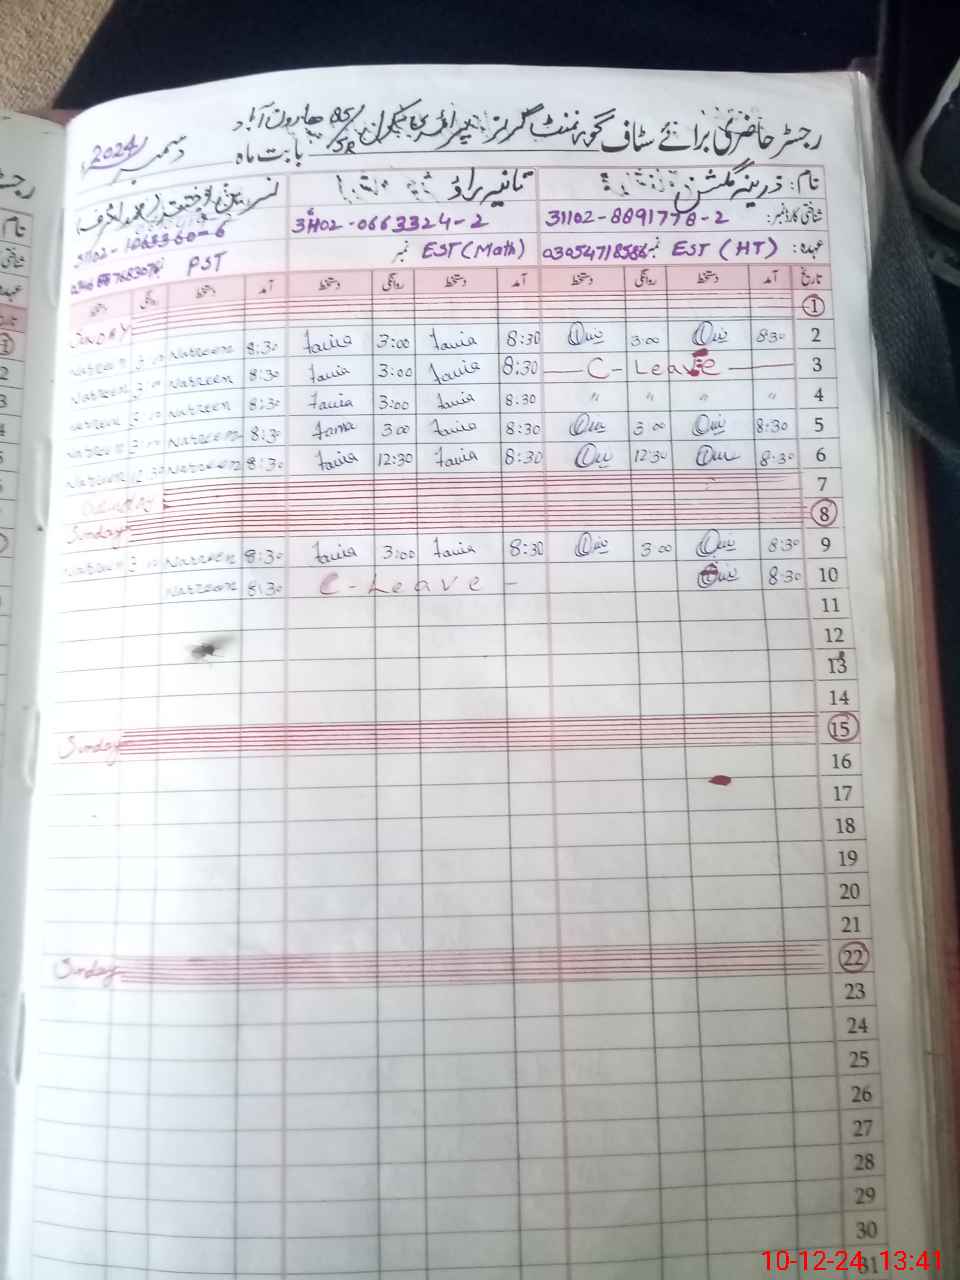 رجسٹر حاضری برائے سٹاف گورنمنٹ گرلز پرائمری سکول 85/5R ہارون آباد
بابت ماہ دسمبر 2024
نام: زرینہ گلشن
ثانیہ راؤ
نسرین
شناختی کارڈ نمبر: 31102-8891778-2
31102-0663324-2
31102-1065360-6
عہدہ: EST (HT) نمبر
EST (Math) نمبر
PST
تاریخ آمد دستخط روانگی دستخط آمد دستخط روانگی دستخط آمد دستخط روانگی دستخط
1 SUNDAY
2 8:30 3:00 8:30 Tania 3:00 Tania 8:30 Nasreen 3:00 Nasreen
3 C-Leave 8:30 Tania 3:00 Tania 8:30 Nasreen 3:00 Nasreen
4 " " " " 8:30 Tania 3:00 Tania 8:30 Nasreen 3:00 Nasreen
5 8:30 3:00 8:30 Tania 3:00 Tania 8:30 Nasreen 3:00 Nasreen
6 8:30 12:30 8:30 Tania 12:30 Tania 8:30 Nasreen 12:30 Nasreen
7
8 Sunday
9 8:30 3:00 8:30 Tania 3:00 Tania 8:30 Nasreen 3:00 Nasreen
10 8:30 C-Leave 8:30 Nasreen
11
12
13
14
15 Sunday
16
17
18
19
20
21
22 Sunday
23
24
25
26
27
28
29
30
31
10-12-24 13:41